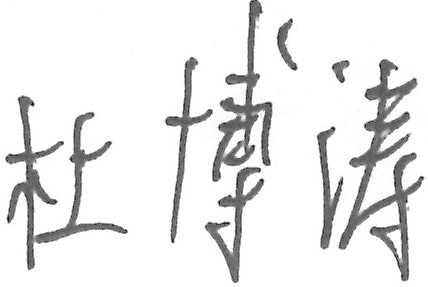 杜博涛